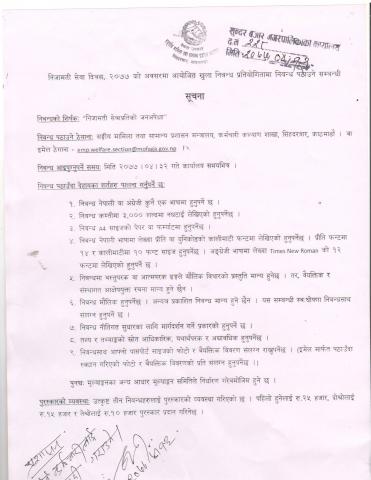 सुन्दर बजार नगरपालिकाको कार्यालय
द.नं. २२९
मिति
निजामती सेवा दिवस, २०७७ को अवसरमा आयोजित खुला निबन्ध प्रतियोगितामा निबन्ध पठाउने सम्बन्धी
सूचना
निबन्धको शिर्षक: "निजामती सेवाप्रतिको जनअपेक्षा"
निबन्ध पठाउने ठेगाना: सङ्घीय मामिला तथा सामान्य प्रशासन मन्त्रालय, कर्मचारी कल्याण शाखा, सिंहदरबार, काठमाडौं । वा
इमेल ठेगाना - emp.welfare.section@mofaga.gov.np ।
निबन्ध आइपुग्नुपर्ने समय: मिति २०७७।०४।३२ गते कार्यालय समयभित्र ।
निबन्ध पठाउँदा देहायका शर्तहरु पालना गर्नुपर्ने छ:
१. निबन्ध नेपाली वा अंग्रेजी कुनै एक भाषामा हुनुपर्ने छ ।
२. निबन्ध कम्तीमा ३,००० शब्दमा नघटाई लेखिएको हुनुपर्नेछ ।
३. निबन्ध A4 साइजको पेपर वा फर्म्याटमा हुनुपर्नेछ ।
४. निबन्ध नेपाली भाषामा लेख्दा प्रीति वा युनिकोडको कालीमाटी फन्टमा लेखिएको हुनुपर्नेछ । प्रीति फन्टमा
१४ र कालीमाटीमा १० फन्ट साइज हुनुपर्नेछ । अङ्ग्रेजी भाषामा लेख्दा Times New Roman को १२
फन्टमा लेखिएको हुनुपर्ने छ ।
५. निबन्धमा भरपुरक वा आत्मपरक ढङ्गले मौलिक विचारको प्रस्तुति मान्य हुनेछ । तर, वैयक्तिक र
संस्थागत आक्षेपयुक्त रचना मान्य हुने छैन ।
६. निबन्ध मौलिक हुनुपर्नेछ । अन्यत्र प्रकाशित निबन्ध मान्य हुने छैन । यस सम्बन्धी स्व:घोषणा निबन्धसाथ
संलग्न हुनुपर्ने छ ।
७. निबन्ध नीतिगत सुधारका लागि मार्गदर्शन गर्ने प्रकारको हुनुपर्ने छ ।
८. तथ्य र तथ्याङ्कको स्रोत आधिकारिक, यथार्थपरक र अद्यावधिक हुनुपर्नेछ ।
९. निबन्धसाथ आफ्नो पासपोर्ट साइजको फोटो र वैयक्तिक विवरण संलग्न राख्नुपर्नेछ । (इमेल मार्फत पठाउँदा
स्क्यान गरिएको फोटो र वैयक्तिक विवरणको प्रति संलग्न हुनुपर्नेछ ।)
पुनश्च: मूल्याङ्कनका अन्य आधार मूल्याङ्कन समितिले निर्धारण गरेबमोजिम हुने छ ।
पुरस्कारको व्यवस्था: उत्कृष्ट तीन निबन्धहरुलाई पुरस्कारको व्यवस्था गरिएको छ । पहिलो हुनेलाई रु.२५ हजार, दोश्रोलाई
रु.१५ हजार र तेश्रोलाई रु.१० हजार पुरस्कार प्रदान गरिनेछ ।